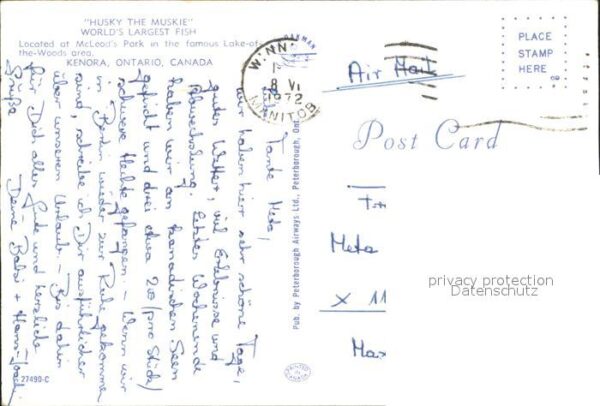 "HUSKY THE MUSKIE"
WORLD'S LARGEST FISH
Located at McLeod's Park in the famous Lake-of-
the-Woods area.
KENORA, ONTARIO, CANADA
WINN
8 VI
1972
MANITOB
Air Mail
PLACE
STAMP
HERE
Post Card
Tante Meta,
wir haben hier sehr schöne Tage,
gutes Wetter, viel Erlebnisse und
Abwechslung. Letztes Wochenende
haben wir am kanadischen Seen
gefischt und drei etwa 20/pro Stück/
schwere Hechte gefangen. - Wenn wir
in Berlin wieder zur Ruhe gekommen
sind, schreibe ich Dir ausführlicher
über unseren Urlaub. - Bis dahin
für Dich alles Gute und herzliche
Grüße Deine Babsi + Hans-Joach
Pub. by Peterborough Airways Ltd., Peterborough, Ont.
Meta
X 11
privacy protection
Datenschutz
PRINTED IN CANADA
27490-C